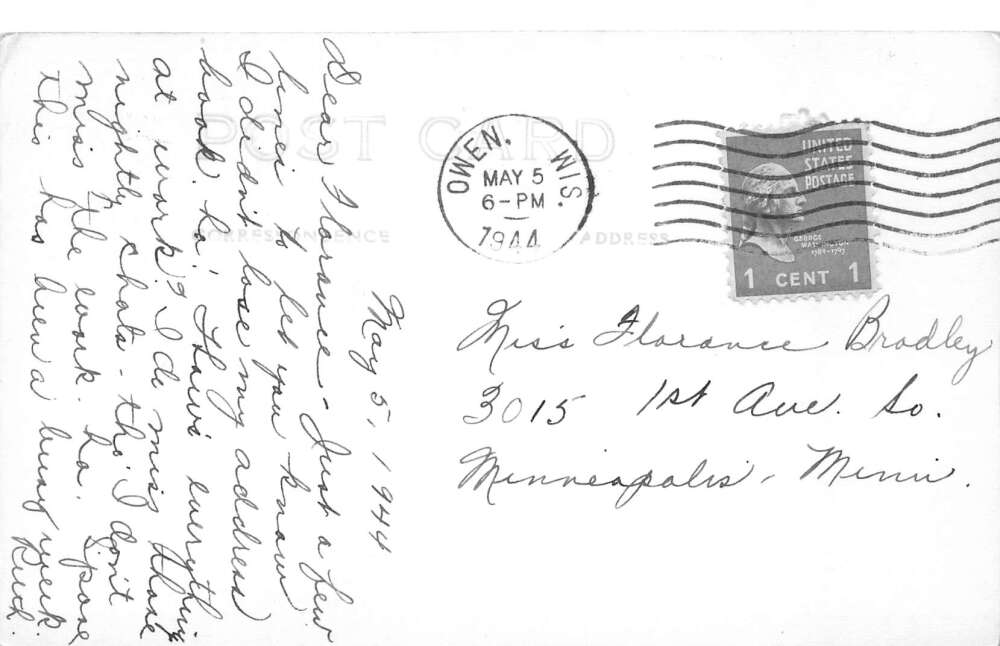 POST CARD
CORRESPONDENCE
ADDRESS
OWEN. WIS.
MAY 5
6-PM
1944
UNITED
STATES
POSTAGE
GEORGE
WASHINGTON
1789-1797
1 CENT 1
Miss Florance Bradley
3015 1st Ave. So.
Minneapolis, Minn.
May 5, 1944
Dear Florance - Just a few
lines to let you know
I didn't lose my address
book. ha! Hows everything
at work? I do miss those
nightly chats - tho' I don't
miss the work. ha. S'pose
this has been a busy week.